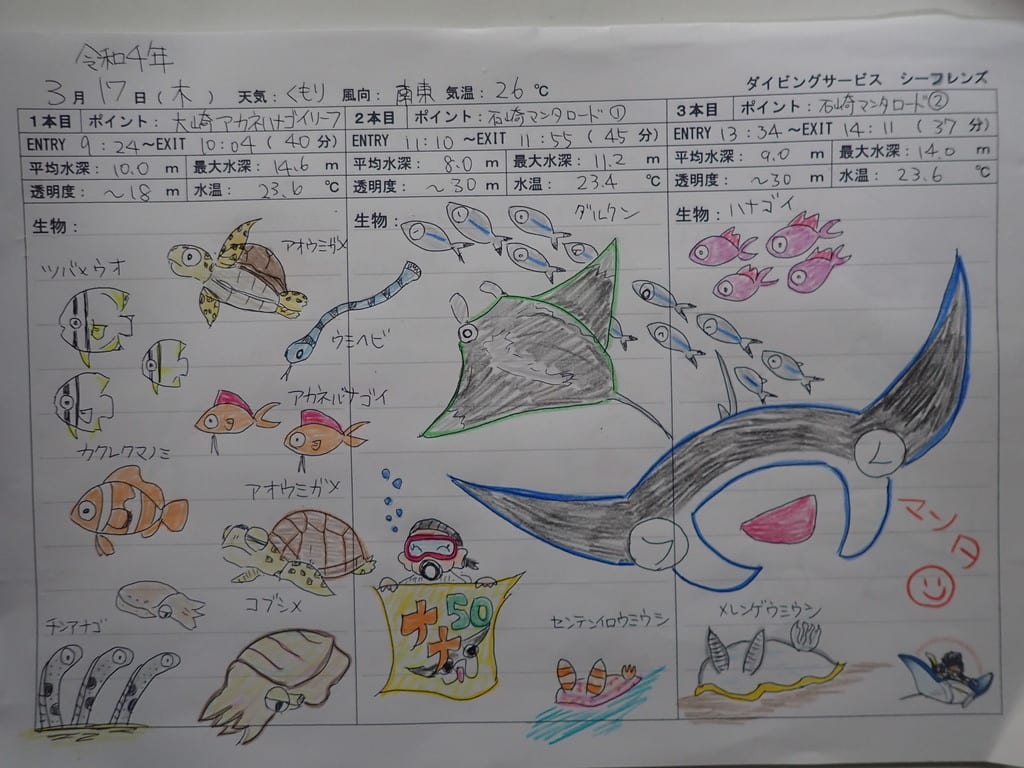 令和4年
3月17日(木) 天気:くもり 風向:南東 気温:26℃
ダイビングサービス シーフレンズ
1本目 ポイント:大崎アカネハナゴイリーフ
ENTRY 9:24~EXIT 10:04(40分)
平均水深:10.0m 最大水深:14.6m
透明度:~18m 水温:23.6℃
2本目 ポイント:石崎マンタロード①
ENTRY 11:10~EXIT 11:55(45分)
平均水深:8.0m 最大水深:11.2m
透明度:~30m 水温:23.4℃
3本目 ポイント:石崎マンタロード②
ENTRY 13:34~EXIT 14:11(37分)
平均水深:9.0m 最大水深:14.0m
透明度:~30m 水温:23.6℃
生物:
アオウミガメ
ツバメウオ
ウミヘビ
アカネハナゴイ
カクレクマノミ
アオウミガメ
コブシメ
チンアナゴ
生物:
グルクン
50
ナナ
センテンイロウミウシ
生物:
ハナゴイ
マンタ
メレンゲウミウシ